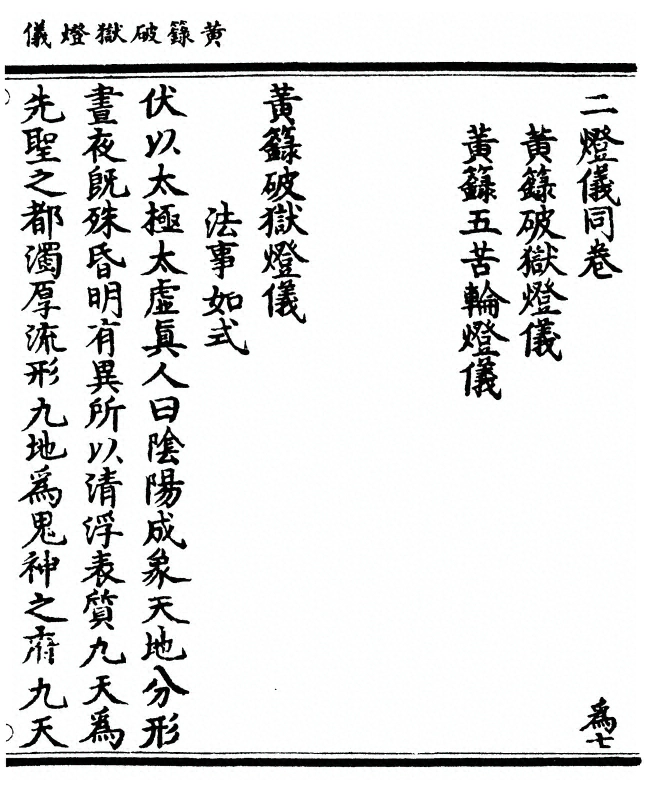 黄籙破獄燈儀
二燈儀同卷
爲七
黃籙破獄燈儀
黃籙五苦輪燈儀
黃籙破獄燈儀
法事如式
伏以太極太虛眞人曰陰陽成象天地分形
晝夜旣殊昏明有異所以清浮表質九天爲
先聖之都濁厚流形九地爲鬼神之府九天